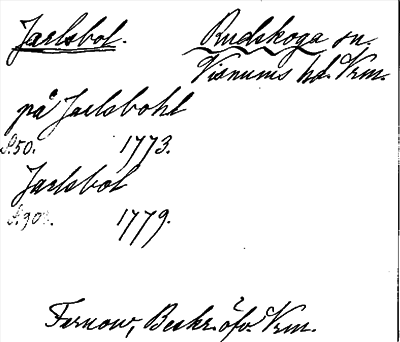 Jarlsbol. Rudskoga sn.
Visnums hd. Vrm.
på Jarlsbohl
S.50. 1773.
Jarlsbol
1779.
Fernow, Beskr. öfv. Vrm.